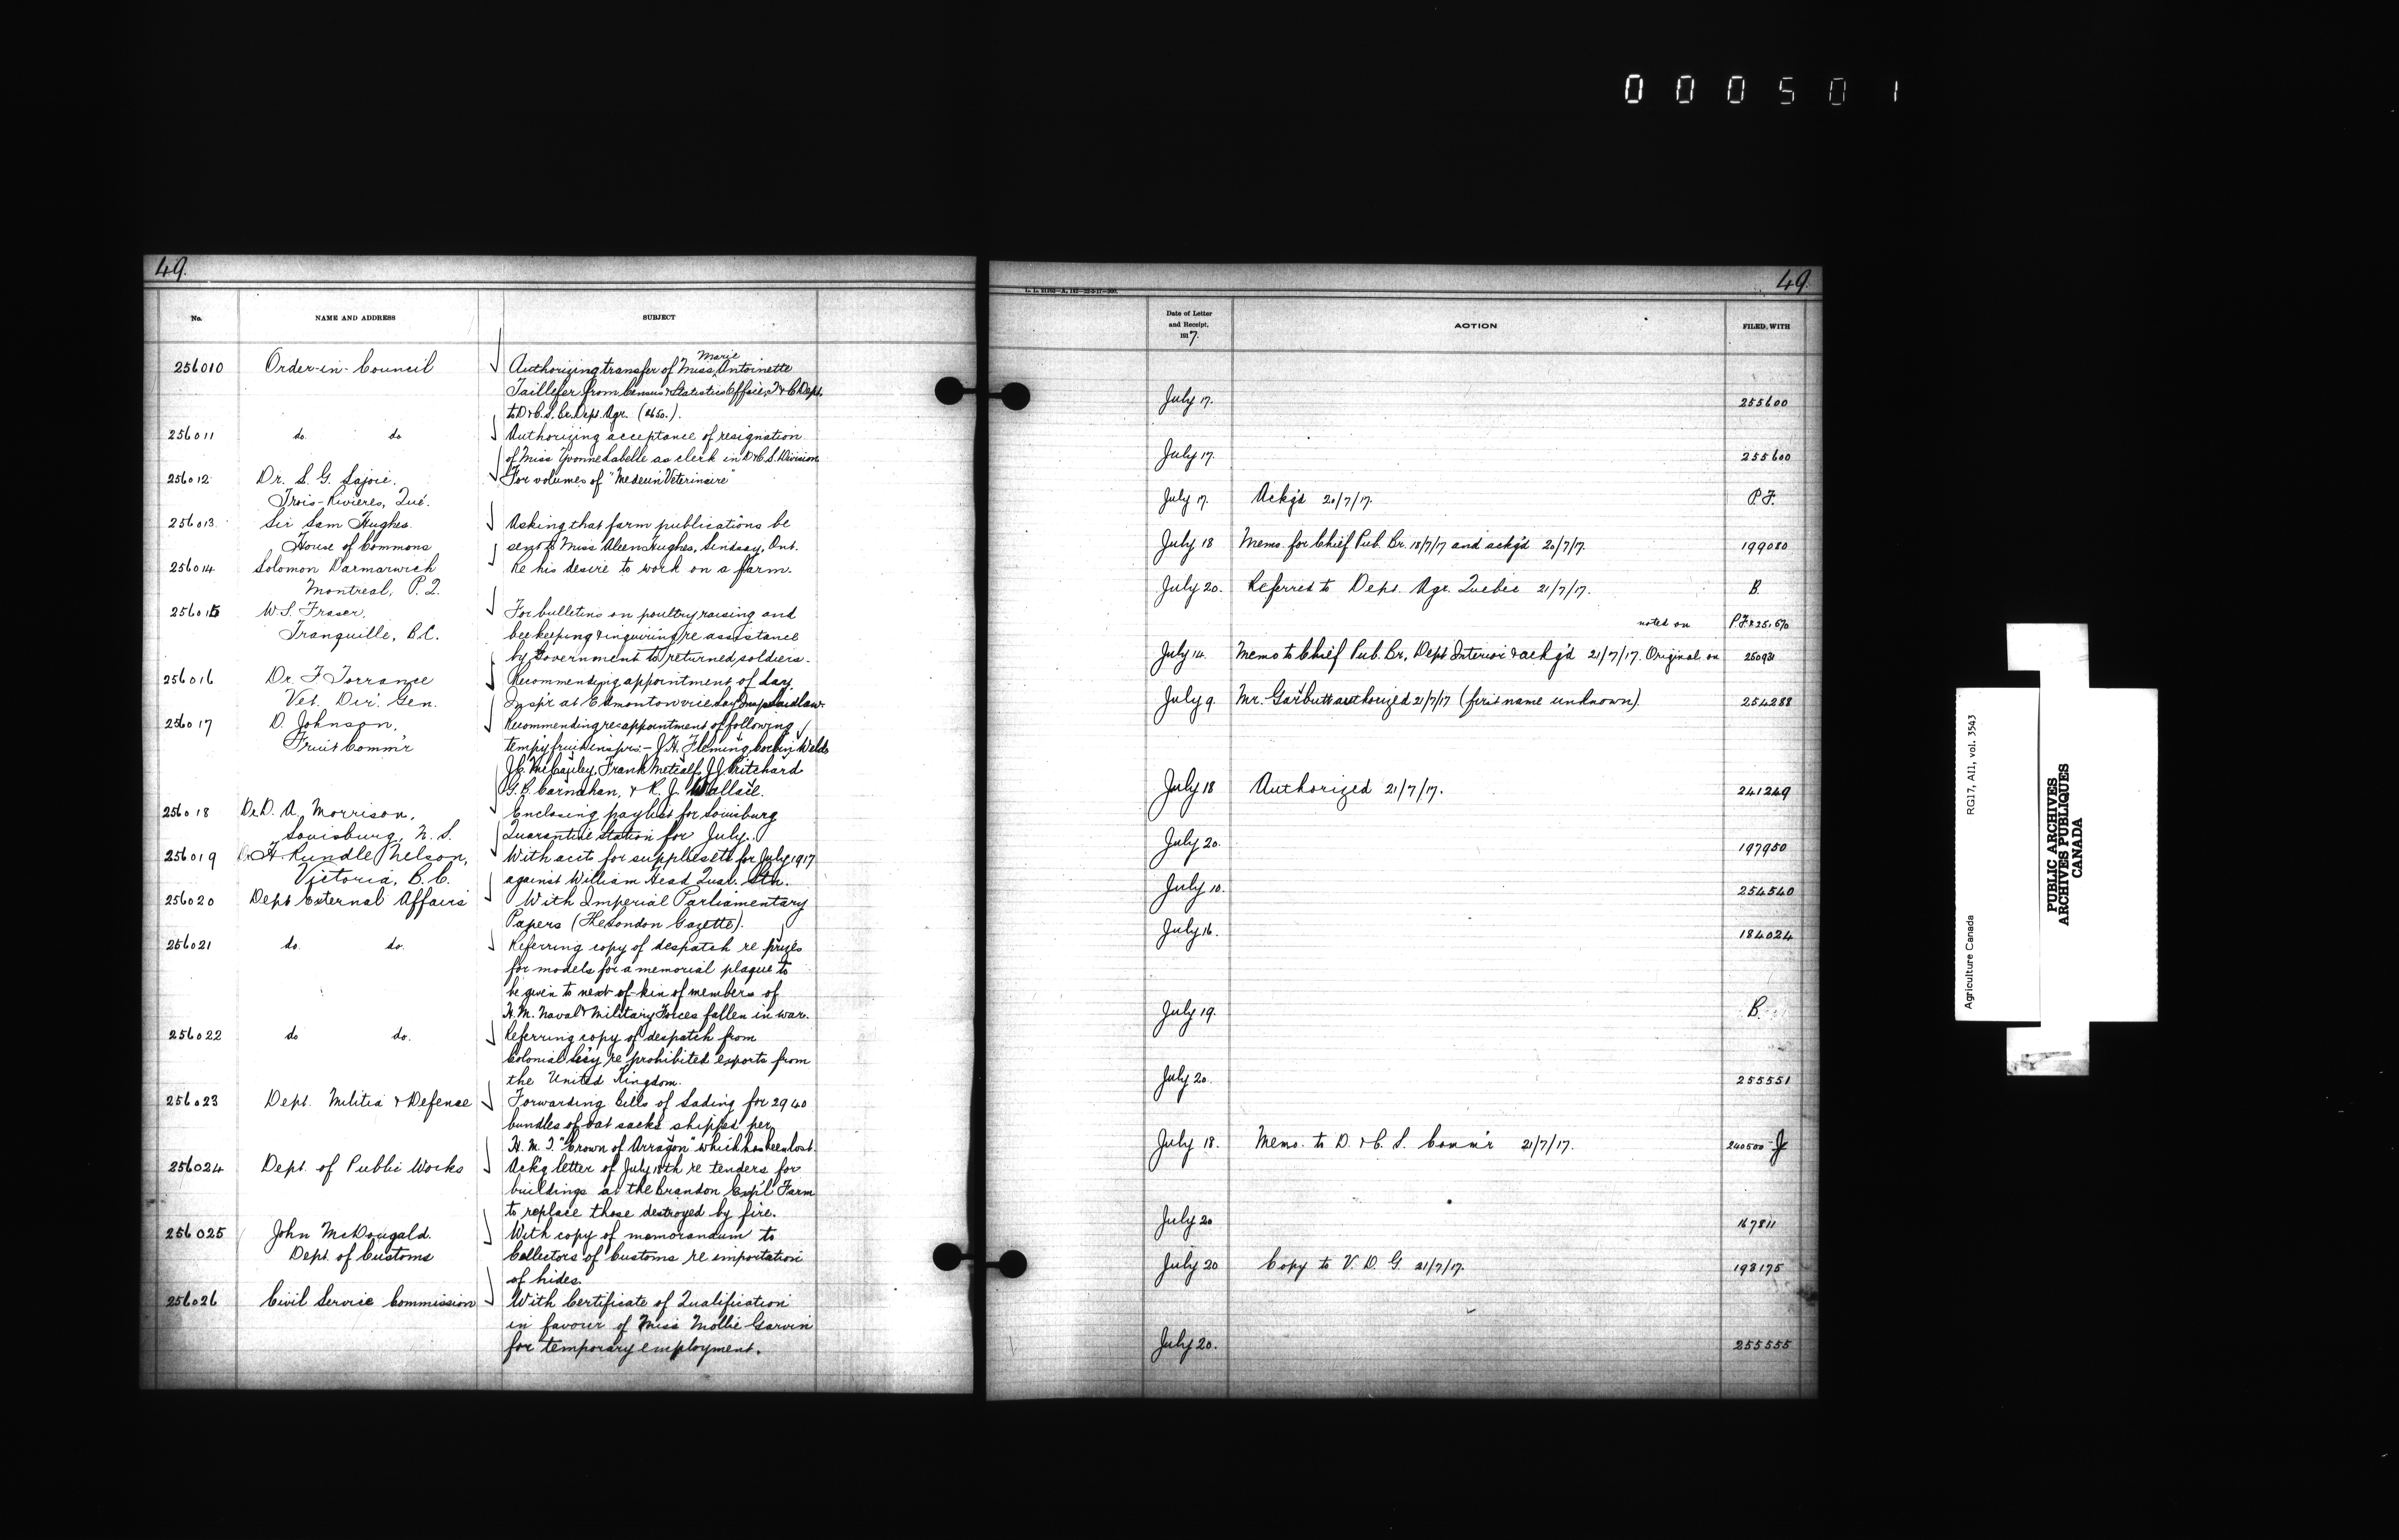 0 0 0 5 0 1
49.
No.
NAME AND ADDRESS
SUBJECT
256010 Order-in-Council Authorizing transfer of Miss Marie Antoinette
Taillefer from Census & Statistics Office, T & C Dept.
to D & C. S. Br. Dept. Agr. ($650.).
256011 do. do Authorizing acceptance of resignation
of Miss Yvonne Labelle as clerk in D & C. S. Division
256012 Dr. S. G. Lajoie. For volumes of "Medecin Veterinaire"
Trois-Rivieres, Que.
256013 Sir Sam Hughes. Asking that farm publications be
House of Commons sent to Miss Aleen Hughes, Lindsay, Ont.
256014 Solomon Darmarwich Re his desire to work on a farm.
Montreal, P.Q.
256015 W. S. Fraser, For bulletins on poultry raising and
Tranquille, B.C. beekeeping & inquiring re assistance
by Government to returned soldiers.
256016 Dr. F Torrance Recommending appointment of day
Vet. Dir. Gen. Inspr at Edmonton vice day Insp Laidlaw.
256017 D. Johnson, Recommending reappointment of following
Fruit Comm'r temp'y fruit insprs:- J. H. Fleming, Corbin Welds
J.C. McCauley, Frank Metcalf, J J Pritchard
G. B. Carnahan, & R. J. Wallace.
256018 Dr D. A. Morrison, Enclosing paylist for Louisburg
Louisburg, N. S. Quarantine Station for July.
256019 Dr. H. Rundle Nelson, With acct for supplies etc for July 1917
Victoria, B.C. against William Head Quar. Stn.
256020 Dept External Affairs With Imperial Parliamentary
Papers (The London Gazette).
256021 do. do. Referring copy of despatch re prizes
for models for a memorial plaque to
be given to next-of-kin of members of
H. M. Naval & Military Forces fallen in war.
256022 do do. Referring copy of despatch from
Colonial Sec'y re prohibited exports from
the United Kingdom.
256023 Dept. Militia & Defense Forwarding bills of lading for 2940
bundles of oat sacks shipped per
H. M. T. "Crown of Arragon" which has been lost.
256024 Dept. of Public Works Ack'g letter of July 18th re tenders for
buildings at the Brandon Exp'l Farm
to replace those destroyed by fire.
256025 John McDougald. With copy of memorandum to
Dept. of Customs Collectors of Customs re importation
of hides.
256026 Civil Service Commission With Certificate of Qualification
in favour of Miss Mollie Garvin
for temporary employment.
49.
Date of Letter
and Receipt,
1917.
ACTION
FILED WITH
July 17. 255600
July 17. 255600
July 17. Ackg'd 20/7/17. P.F.
July 18 Memo. for Chief Pub. Br. 18/7/17 and ackg'd 20/7/17. 199080
July 20. Referred to Dept. Agr. Quebec 21/7/17. B.
noted on
July 14. Memo to Chief Pub. Br., Dept Interior & ackg'd 21/7/17. Original on
July 9. Mr. Garbutt authorized 21/7/17 (first name unknown). 254288
July 18 Authorized 21/7/17. 241249
July 20. 197950
July 10. 254540
July 16. 184024
July 19. B.
July 20. 255551
July 18. Memo. to D. & C. S. Comm'r 21/7/17. 240500-J
July 20 167811
July 20 Copy to V. D. G. 21/7/17. 198175
July 20. 255555
Agriculture Canada
RG17, A11, vol. 3543
PUBLIC ARCHIVES
ARCHIVES PUBLIQUES
CANADA